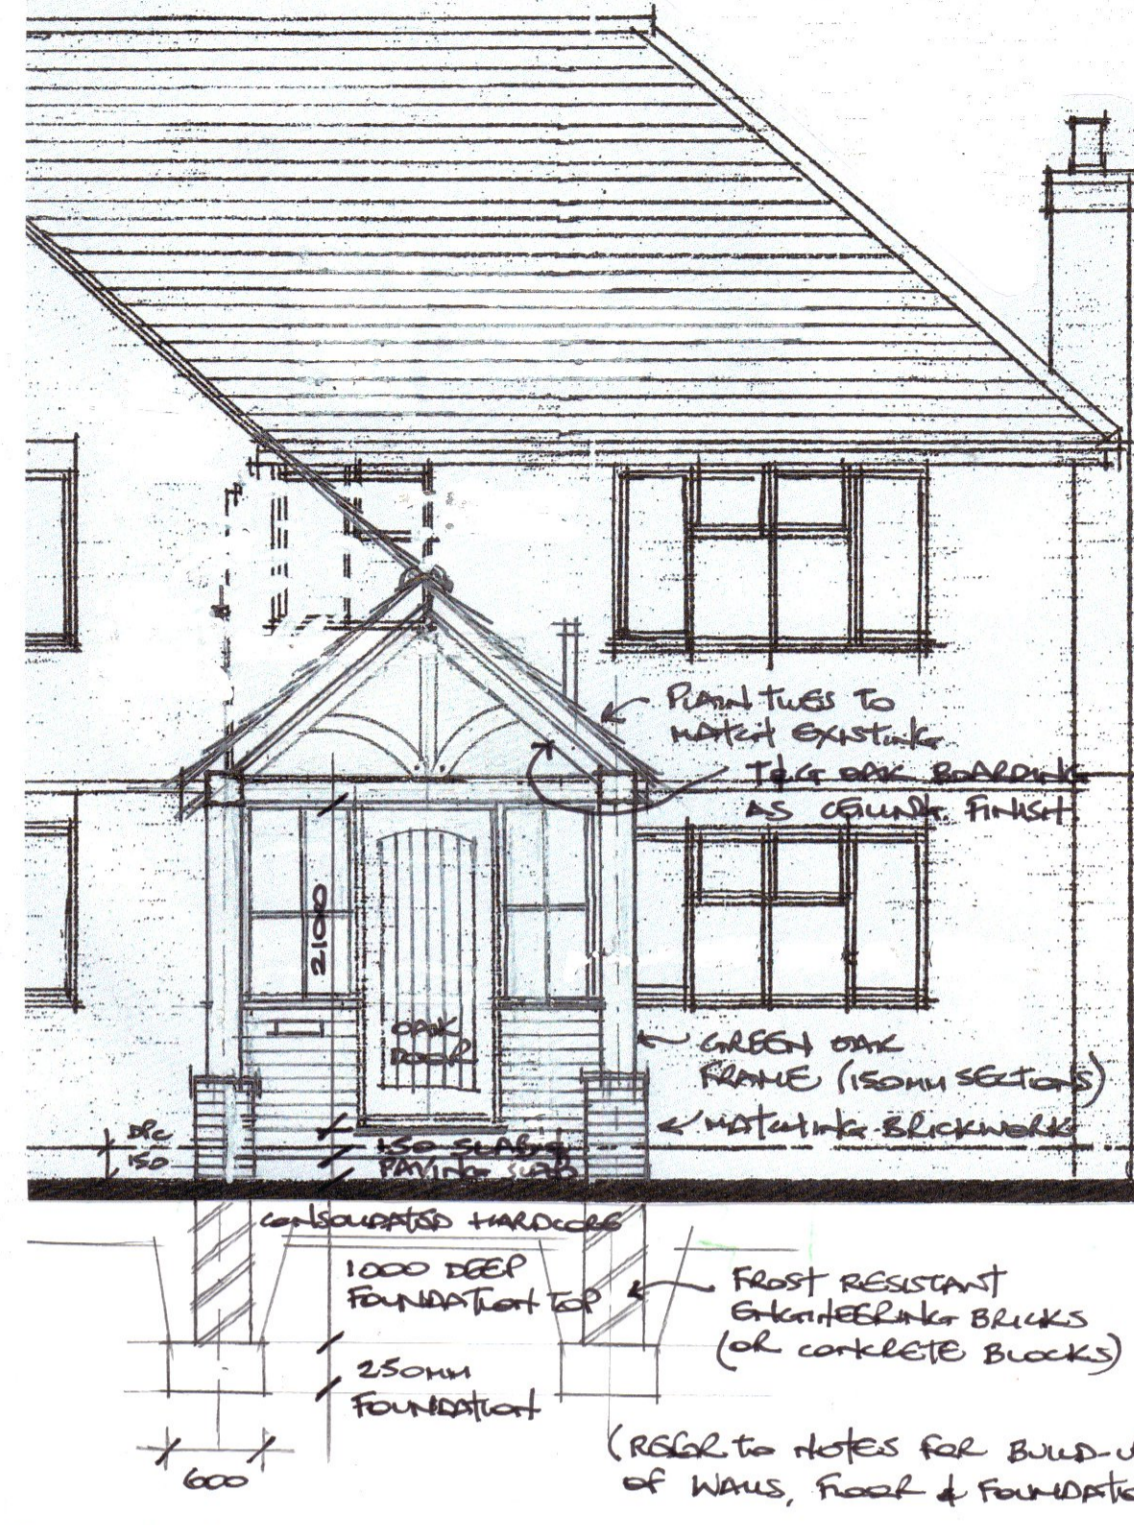 PLAIN TILES TO
MATCH EXISTING
T&G OAK BOARDING
AS CEILING FINISH
2100
OAK
DOOR
GREEN OAK
FRAME (150MM SECTIONS)
MATCHING BRICKWORK
DPC
150
150 SLAB &
PAVING SLAB
CONSOLIDATED HARDCORE
1000 DEEP
FOUNDATION TOP
FROST RESISTANT
ENGINEERING BRICKS
(OR CONCRETE BLOCKS)
250MM
FOUNDATION
600
(REFER TO NOTES FOR BUILD-U
OF WALLS, FLOOR & FOUNDATIO